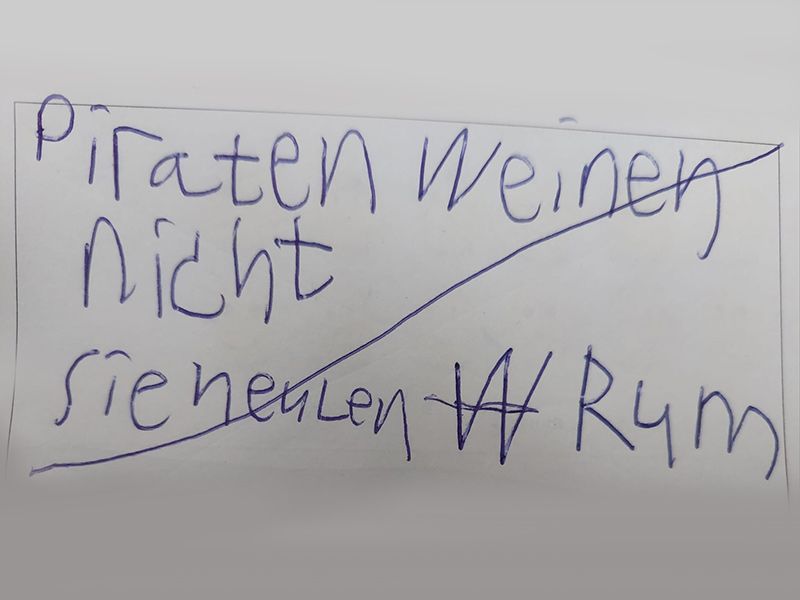 Piraten Weinen
nicht
sie heulen W Rum